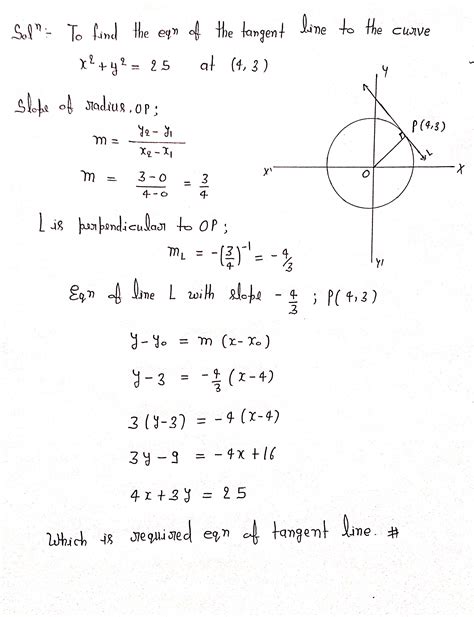 Solⁿ:- To find the eqn of the tangent line to the curve
x² + y² = 25 at (4,3)
Slope of radius, OP;
m = (y₂ - y₁)/(x₂ - x₁)
m = (3-0)/(4-0) = 3/4
L is perpendicular to OP;
m_L = -(3/4)⁻¹ = -4/3
Eqn of line L with slope -4/3 ; P(4,3)
y-y₀ = m (x-x₀)
y-3 = -4/3 (x-4)
3(y-3) = -4(x-4)
3y-9 = -4x+16
4x+3y = 25
Which is required eqn of tangent line. #
Y
P(4,3)
L
X'
O
X
Y1